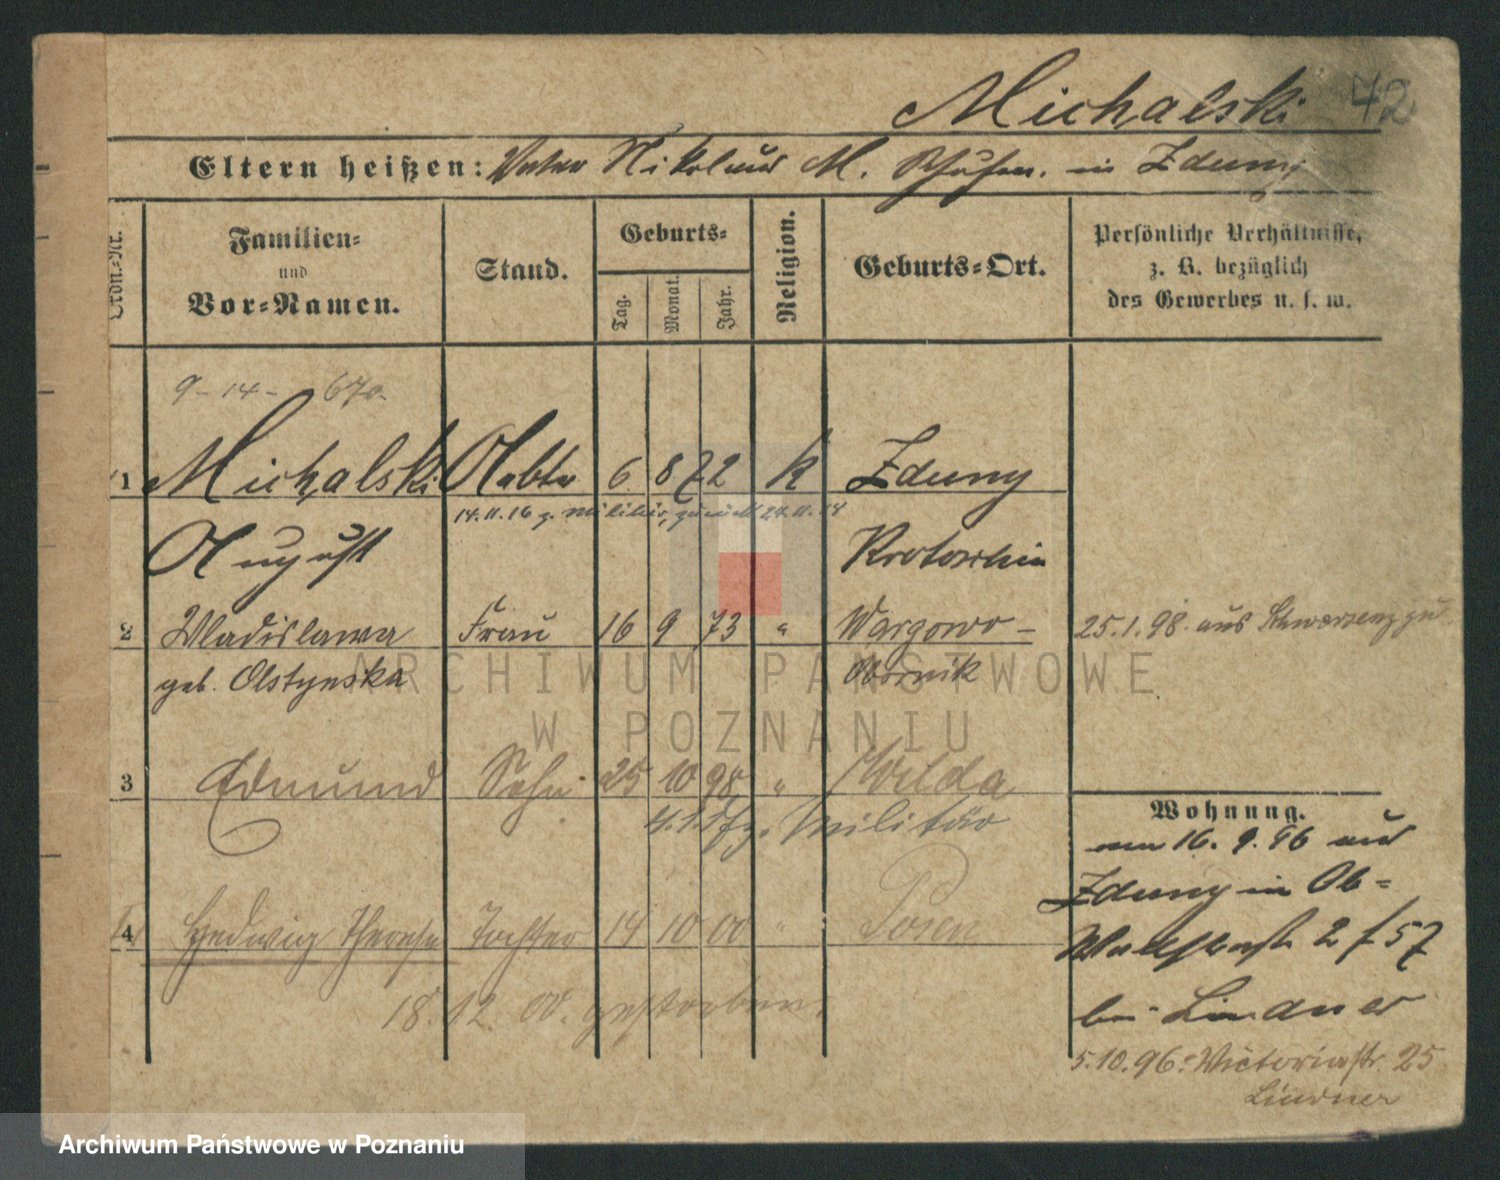 Michalski 42
Eltern heißen: Vater Nikolaus M. in Zduny
Ordn.-Nr.
Familien-
und
Vor-Namen.
Stand.
Geburts-
Tag.
Monat.
Jahr.
Religion.
Geburts-Ort.
Persönliche Verhältnisse,
z. B. bezüglich
des Gewerbes u. s. w.
9-14- 670
1 Michalski Arbtr 6 8 72 k Zduny
14.11.16 z. Militär, 24.11.14
August Krotoschin
2 Wladislawa Frau 16 9 73 " Wargowo- 25.1.98. aus Schwersenz zu
geb. Olstynska Obornik
3 Edmund Sohn 25 10 98 " Wilda
z. Militär
4 Hedwig Therese Tochter 14 10 00 " Posen
18. 12. 00. gestorben.
Wohnung.
am 16. 9. 96 aus
Zduny in Ob-
Wallstraße 2 / 57
bei Lindner
5.10.96: Victoriastr. 25
Lindner
ARCHIWUM PAŃSTWOWE
W POZNANIU
Archiwum Państwowe w Poznaniu